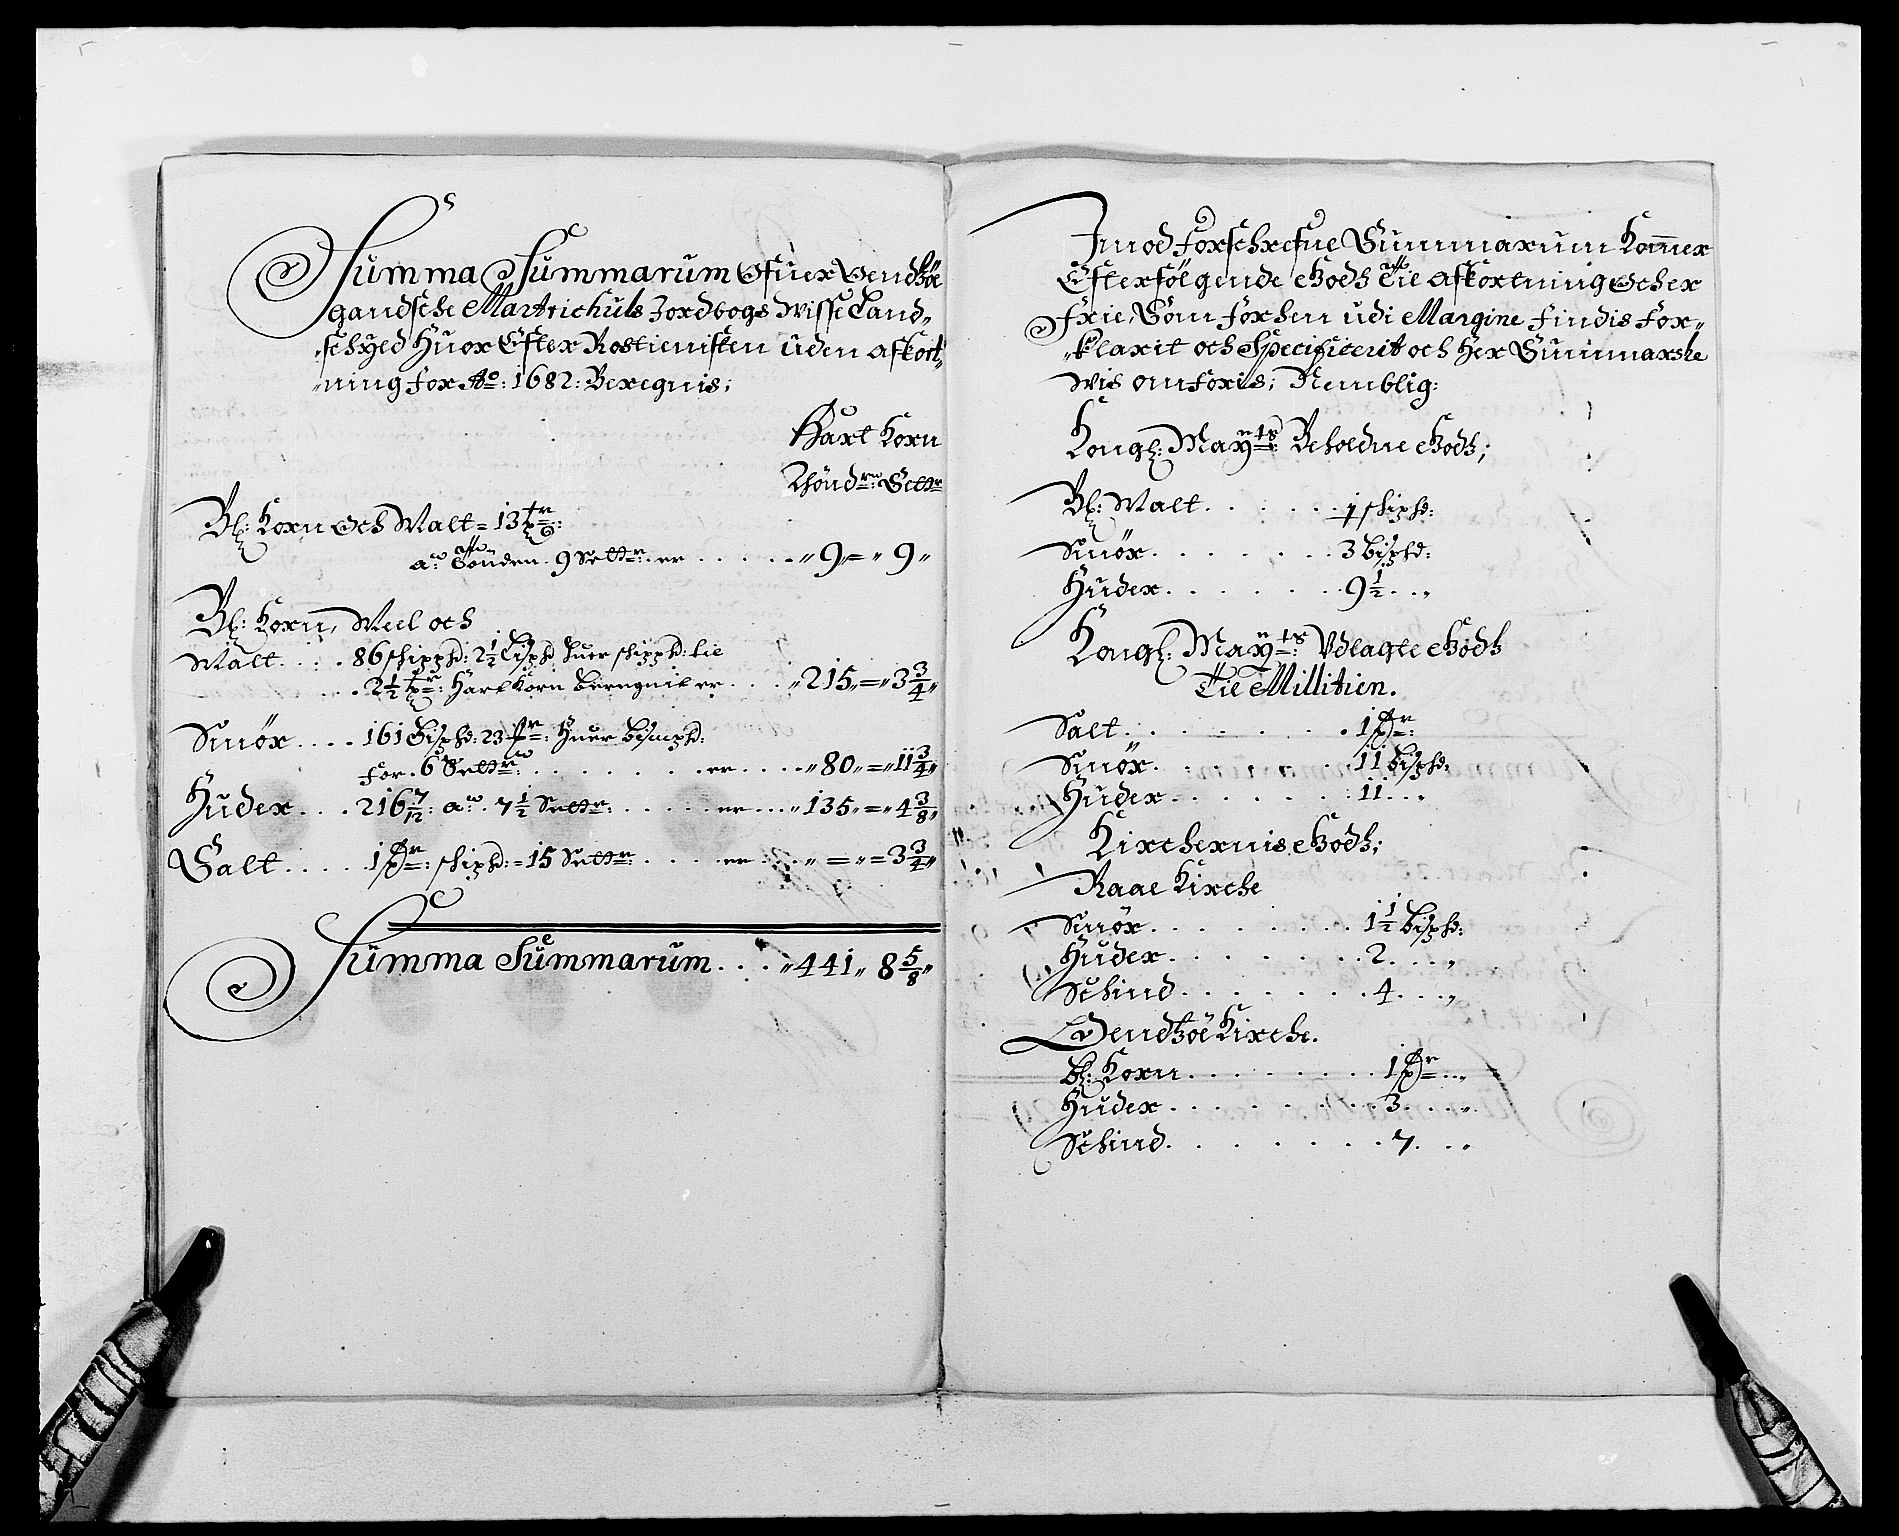 Summa Summarum Ofuer Vendtzøe
gaardsche Martrichuls Jordbogs Wisse Land„
„schyld Huor Efter Rostienisten uden afkort„
„ning for Ao: 1682: Beregnis;
Hart Korn
Thøndr: Settr
Bl: Korn Och Malt = 13 tr:
ar Tønden 9 Settr: er . . . . . „ 9„ = „ 9 „
Bl: Korn, Meel och
Malt . . . . 86 schippd: 2½ Lispd huer schippd: til
. . . 2½ tr: Hart Korn beregnit er . . . „ 215„ = „ 3¾„
Smør . . . . 161 Bispd: 23 mr: Huer Bismpd:
for 6 Settr . . . . . . . er . . . . „ 80„ = „ 11¾„
Huder . . . 216 7/12: ar 7½ Settr: . . . . . er . . . „ 135„ = „ 4⅜„
Salt . . . . . 1 pr: schipd: = 15 Settr . . . . er . . . „ = „ = 3¾„
Summa Summarum . . . „ 441„ 8⅝„
Imod forschrefne Summarum Kommer
Efterfølgende Godtz Til Afkortning Och er
Frie, Som for hen udi Margine findis For„
„klarit och Specificerit och Her Summarske
wis anføris; Nemblig:
Kongl: Mayts Beholdne Godtz;
Bl: Malt . . . . . . 1 schipd:
Smør . . . . . . . 3 Bispd:
Huder . . . . . . . 9½ . . „
Kongl: Mayts: Udlagte Godtz
Til Millitien.
Salt . . . . . . . . . 1 pr:
Smør . . . . . . . 11 Bispd:
Huder . . . . . . . 11 . . „
Kirchernis Godtz;
Raae Kirche
Smør . . . . . . . . 1½ Bispd:
Huder . . . . . . . 2 . . . „
Schind . . . . . . . 4 . . . „
Vendtzøe Kirche.
Bl: Korn . . . . . . . . 1 pr . . „
Huder . . . . . . . . 3 . . . „
Schind . . . . . . . . 7 . . „